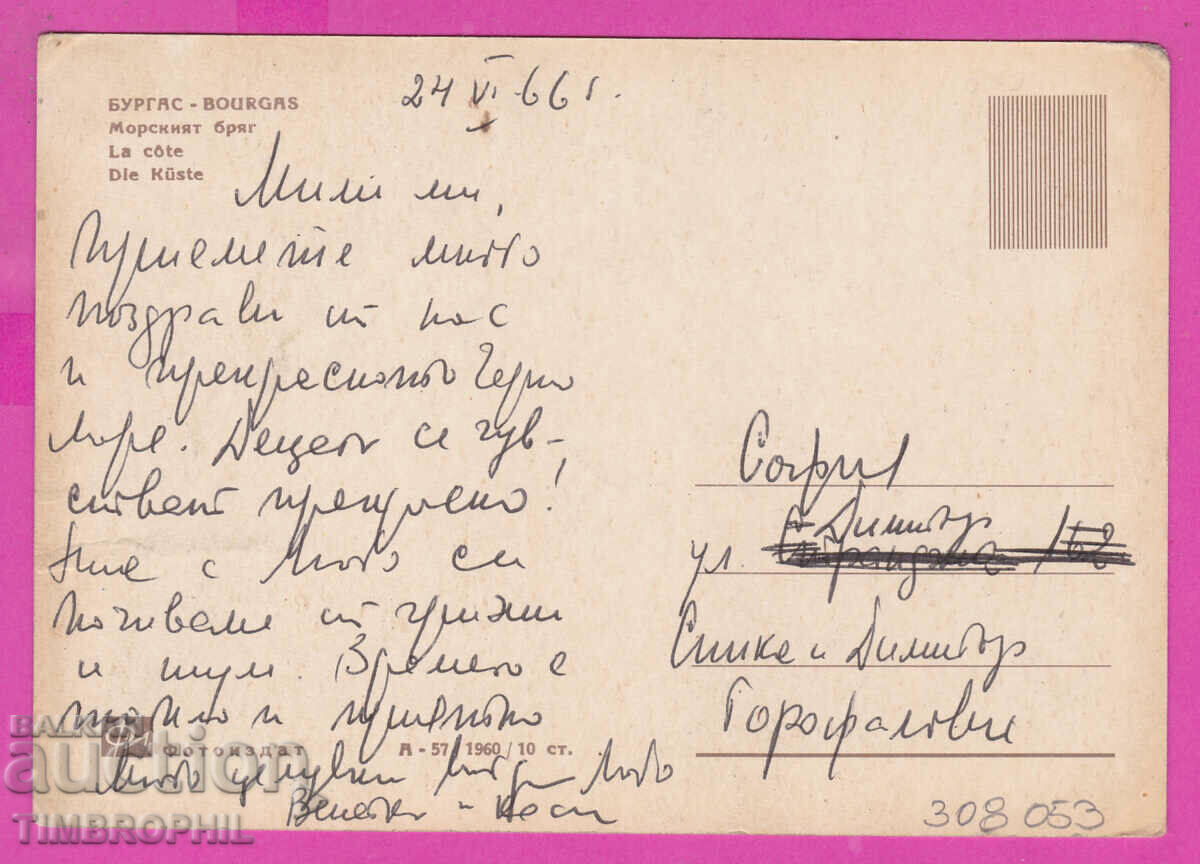 24 VI 66 г.
БУРГАС - BOURGAS
Морският бряг
La côte
Die Küste
Мили ми,
Приемете много
поздрави от нас
и прекрасното Черно
море. Децата се чув-
стват прекрасно!
Ние с Любо си
почиваме от грижи
и шум. Времето е
топло и приятно
Фотоиздат
А - 57 / 1960 / 10 ст.
Много целувки Любо
и
София
ул. Димитър
и Димитър
Горофалови
308 053
БАЛКАН
auction
TIMBROPHIL